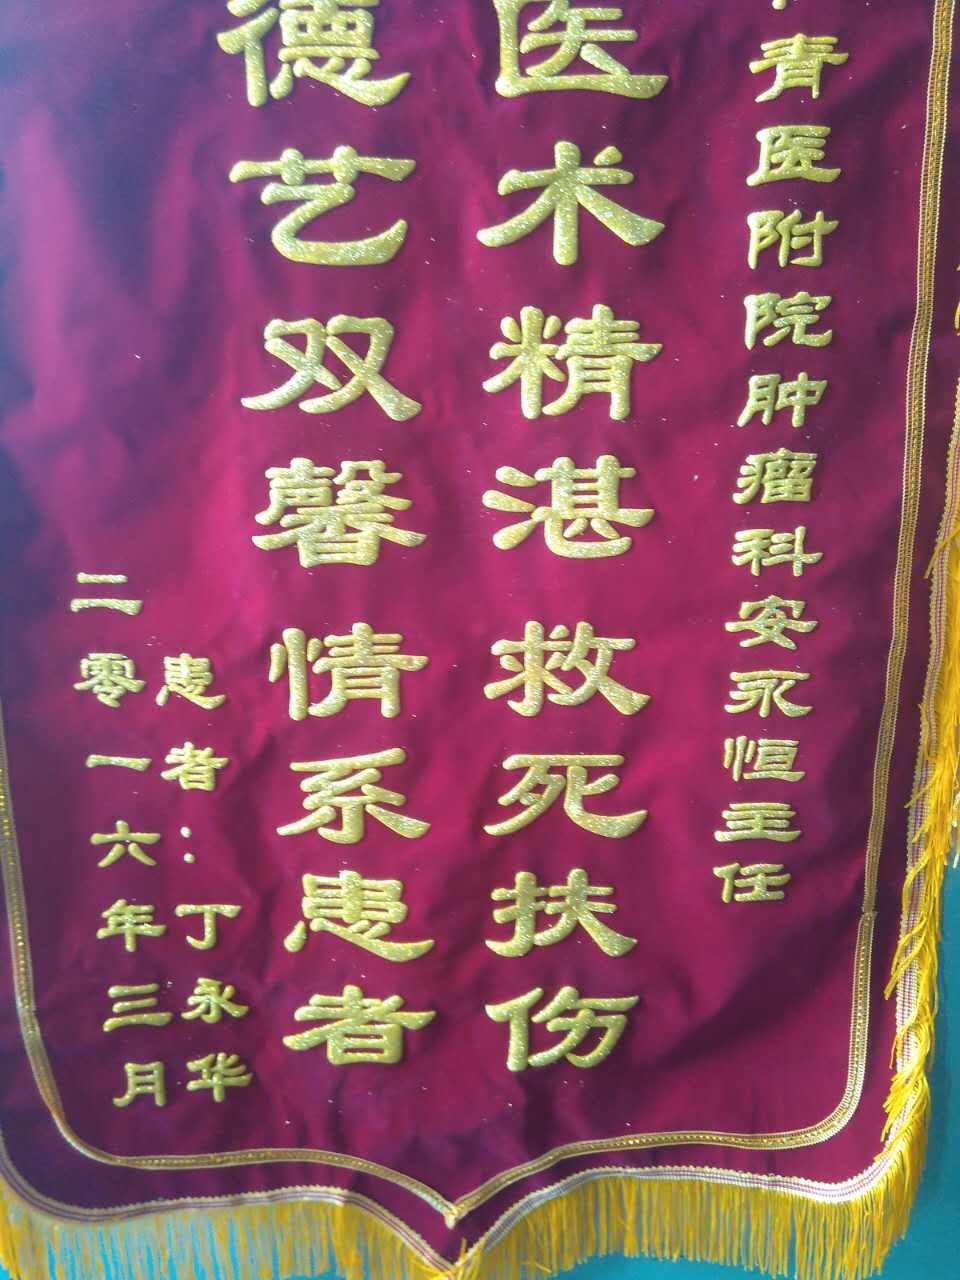 :青医附院肿瘤科安永恒主任
医术精湛救死扶伤
德艺双馨情系患者
患者:丁永华
二零一六年三月